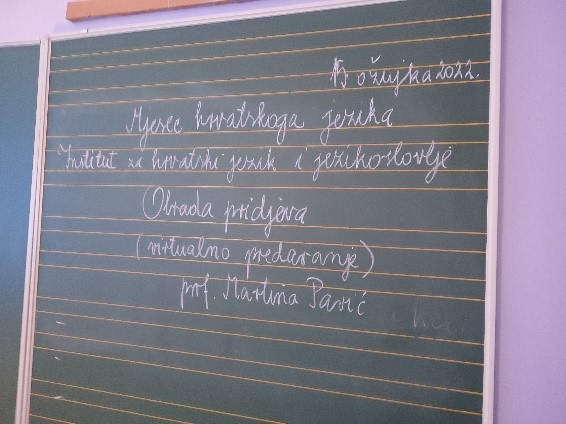 15 ožujka 2022.
Mjesec hrvatskoga jezika
Institut za hrvatski jezik i jezikoslovlje
Obrada pridjeva
(virtualno predavanje)
prof. Martina Pavić